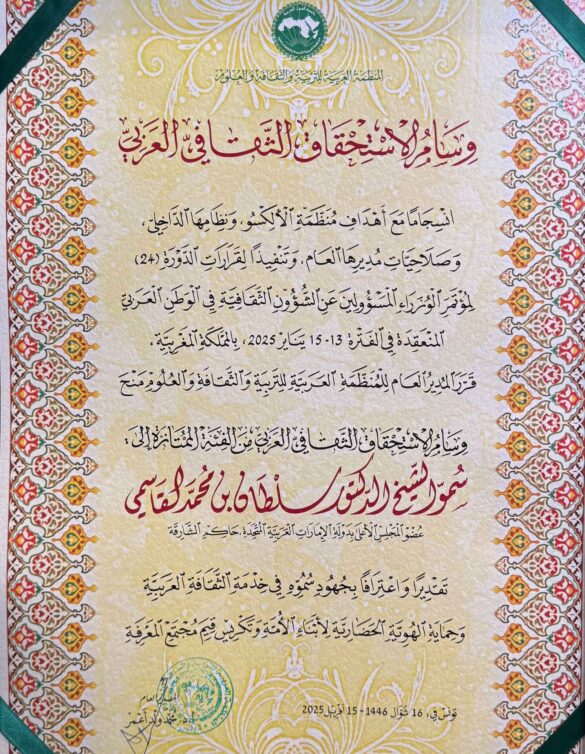 المنظمة العربية للتربية والثقافة والعلوم
وسام الاستحقاق الثقافي العربي
انسجاما مع أهداف منظمة الألكسو، ونظامها الداخلي،
وصلاحيات مديرها العام، وتنفيذا لقرارات الدورة (24)
لمؤتمر الوزراء المسؤولين عن الشؤون الثقافية في الوطن العربي
المنعقدة في الفترة 13-15 يناير 2025، بالمملكة المغربية،
قرر المدير العام للمنظمة العربية للتربية والثقافة والعلوم منح
وسام الاستحقاق الثقافي العربي من الفئة الممتازة إلى:
سمو الشيخ الدكتور سلطان بن محمد القاسمي
عضو المجلس الأعلى بدولة الإمارات العربية المتحدة، حاكم الشارقة
تقديرا واعترافا بجهود سموه في خدمة الثقافة العربية
وحماية الهوية الحضارية لأبناء الأمة وتكريس قيم مجتمع المعرفة
تونس في: 16 شوال 1446 - 15 أفريل 2025
المدير العام
أ.د. محمد ولد أعمر